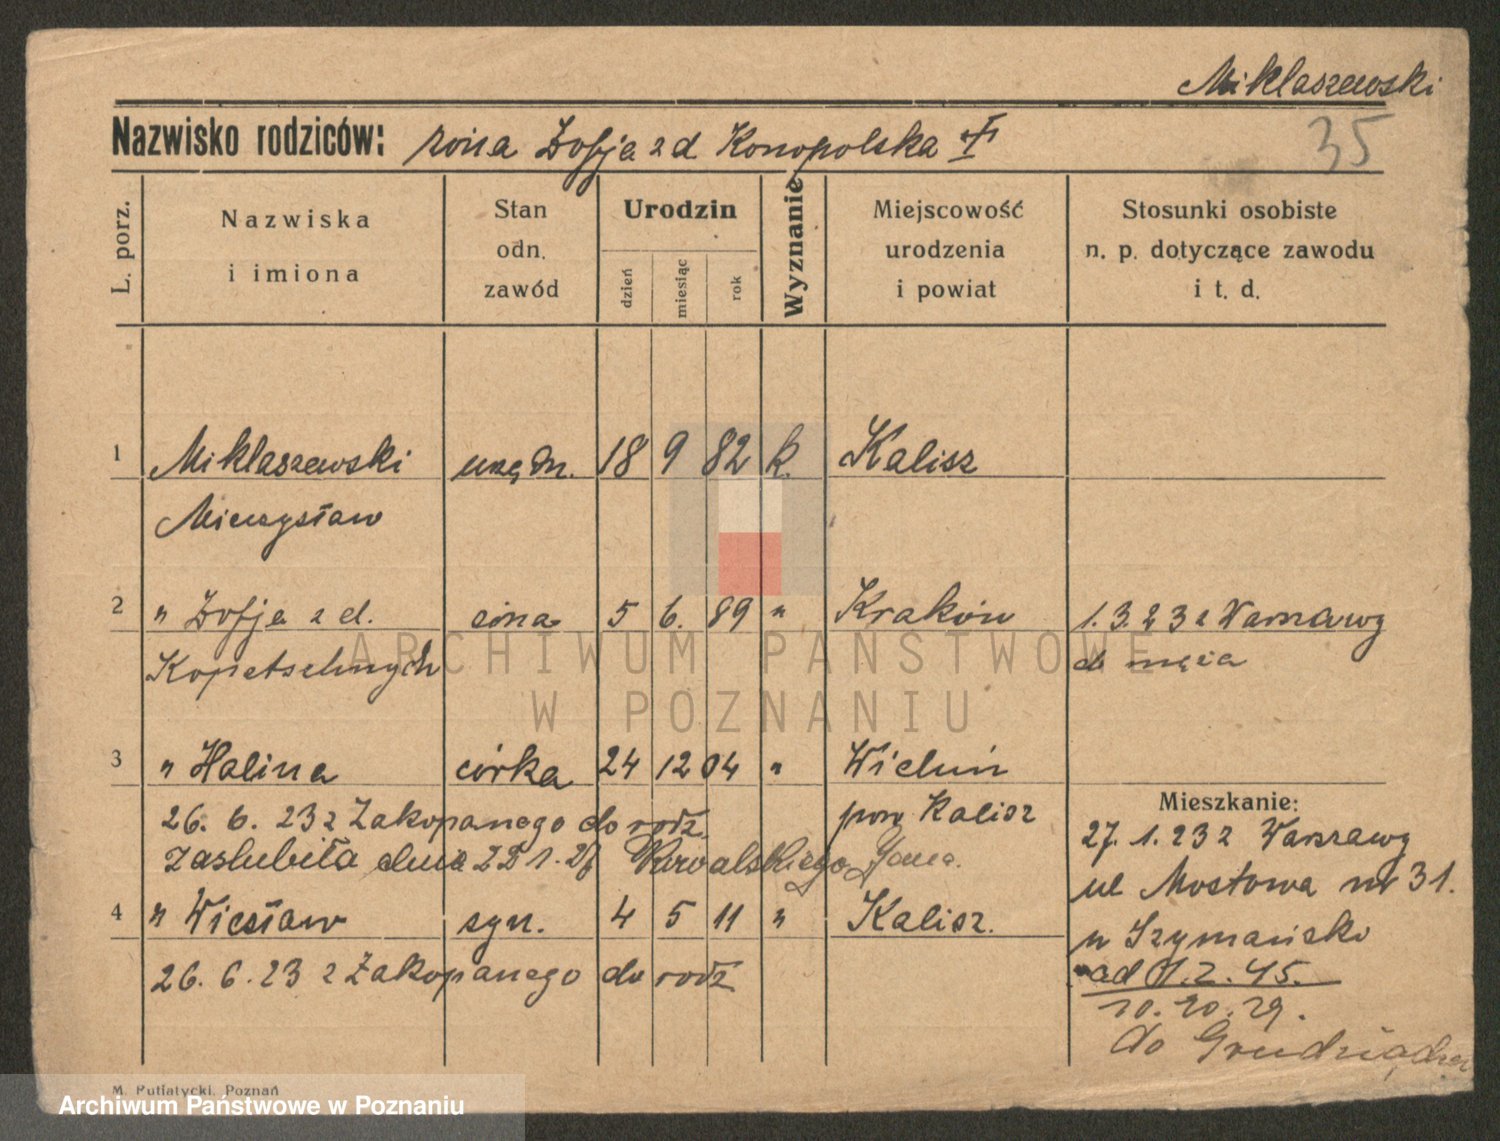 Miklaszewski
Nazwisko rodziców: żona Zofja z d. Konopolska
35
L. porz.
Nazwiska
i imiona
Stan
odn.
zawód
Urodzin
dzień
miesiąc
rok
Wyznanie
Miejscowość
urodzenia
i powiat
Stosunki osobiste
n. p. dotyczące zawodu
i t. d.
1 Miklaszewski urzędn. 18 9 82 k. Kalisz
Mieczysław
2 " Zofja z d. żona 5 6. 89 " Kraków 1.3.23 z Warszawy
Kopetschnych do męża
3 " Halina córka 24 12 04 " Wieluń
26. 6. 23 z Zakopanego do rodz. pow Kalisz
Mieszkanie:
27. 1. 23 z Warszawy
zaślubiła dnia 1. Kowalskiego Jana.
ul Mostowa nr 31.
4 " Wiesław syn. 4 5 11 " Kalisz.
u Szymańsko
26. 6. 23 z Zakopanego do rodz
ad 1. 2. 45.
10. 10. 29.
do Grudziądza
M. Putiatycki, Poznań
ARCHIWUM PAŃSTWOWE
W POZNANIU
Archiwum Państwowe w Poznaniu